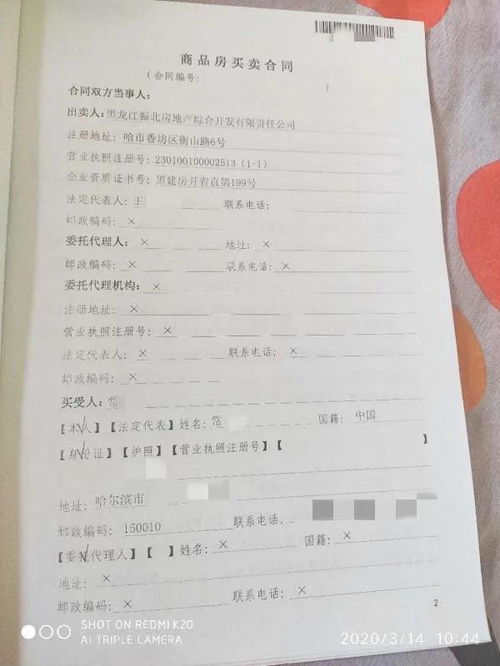 商品房买卖合同
（合同编号： ）
合同双方当事人：
出卖人：黑龙江振北房地产综合开发有限责任公司
注册地址：哈市香坊区衡山路6号
营业执照注册号：230100100002513（1-1）
企业资质证书号：黑建房开省直第199号
法定代表人：王 联系电话：
邮政编码：×
委托代理人：× 地址：×
邮政编码：× 联系电话：×
委托代理机构：×
注册地址：×
营业执照注册号：×
法定代表人：× 联系电话：×
邮政编码：×
买受人：
【本人】【法定代表】姓名： 国籍：中国
【身份证】【护照】【营业执照注册号】【 】
地址：哈尔滨市
邮政编码：150010 联系电话：
【委托代理人】【 】姓名：× 国籍：×
地址：×
邮政编码：× 联系电话：×
2
SHOT ON REDMI K20
AI TRIPLE CAMERA
2020/3/14 10:44